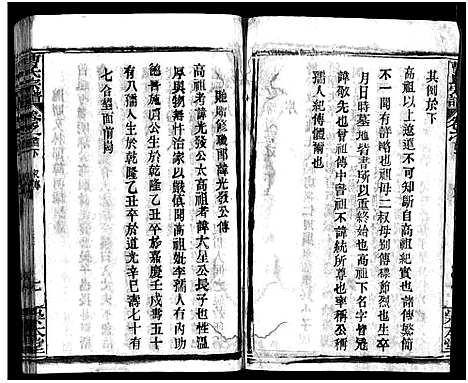 其例於下
高祖以上遼遠不可知斷自高祖紀實也詳多傳繁簡
不一有詳略也祖母二叔母別為傳操節烈也生卒年
月日時墓地皆書所以重終始也高祖下名字皆冠
諱敬先也曾祖傳中書祖不諱統所尊也率稱公稱
孺人紀傳體爾也
馳贈修職郎諱光發公傳
高祖考諱光發公太高祖考諱大星公長子也性溫
厚與物無忤治家以嚴儀閫高祖妣李孺人有內助
德善施濟公生於乾隆乙丑卒於嘉慶壬戌壽五十
有八孺人生於乾隆乙丑卒於道光辛巳壽七十有
七合墓面前崗